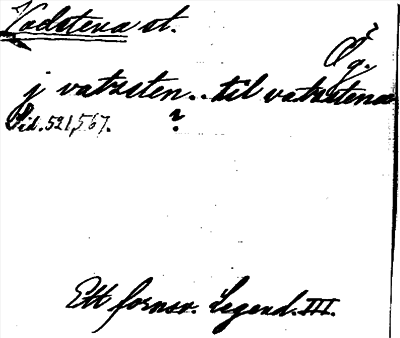 Vadstena st.
Ög.
j vatzsten.. til vatzstena
Sid. 521, 567. ?
Ett fornsv. Legend. III.